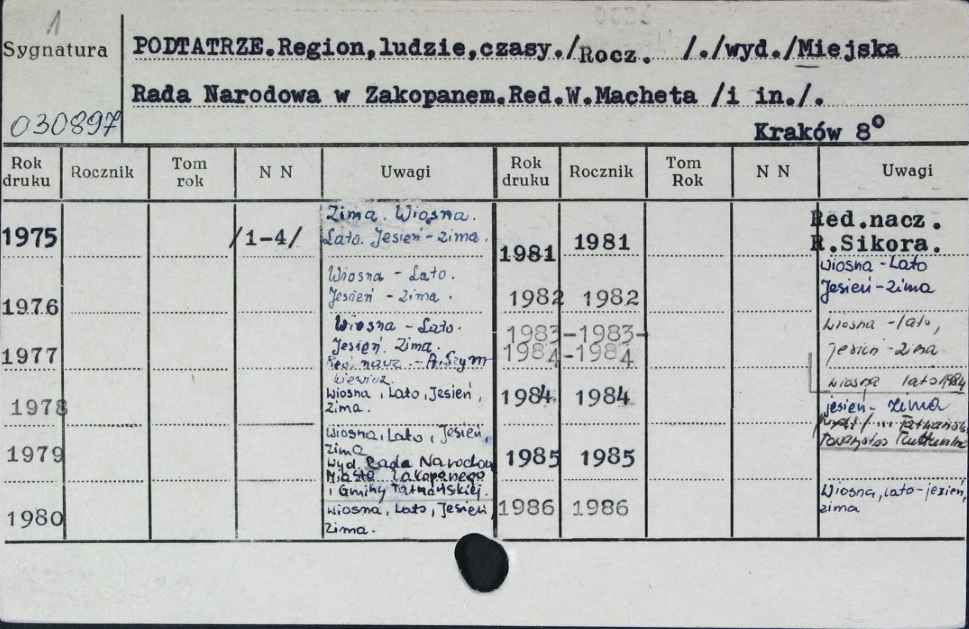 1
Sygnatura
PODTATRZE.Region,ludzie,czasy./Rocz. /./wyd./Miejska
Rada Narodowa w Zakopanem.Red.W.Macheta /i in./.
030897
Kraków 8°
Rok druku Rocznik Tom rok N N Uwagi Rok druku Rocznik Tom Rok N N Uwagi
1975 /1-4/ Zima. Wiosna.
Lato. Jesień-zima.
1976 Wiosna - Lato.
Jesień - zima.
1977 Wiosna - Lato.
Jesień. Zima.
Red. nacz. - A.Szym
kiewicz.
1978 Wiosna, Lato, Jesień,
zima.
1979 Wiosna, Lato, Jesień,
zima
Wyd. Rada Narodow
Miasta Zakopanego
i Gminy Tatrzańskiej.
1980 Wiosna, Lato, Jesień,
zima.
1981 1981 Red.nacz.
R.Sikora.
1982 1982 Wiosna-Lato
Jesień-zima
1983-1983- Wiosna-lato,
1984-1984 jesień-zima
wiosna lato 1984
1984 1984 jesień-zima
1985 1985
1986 1986 Wiosna, lato-jesień,
zima